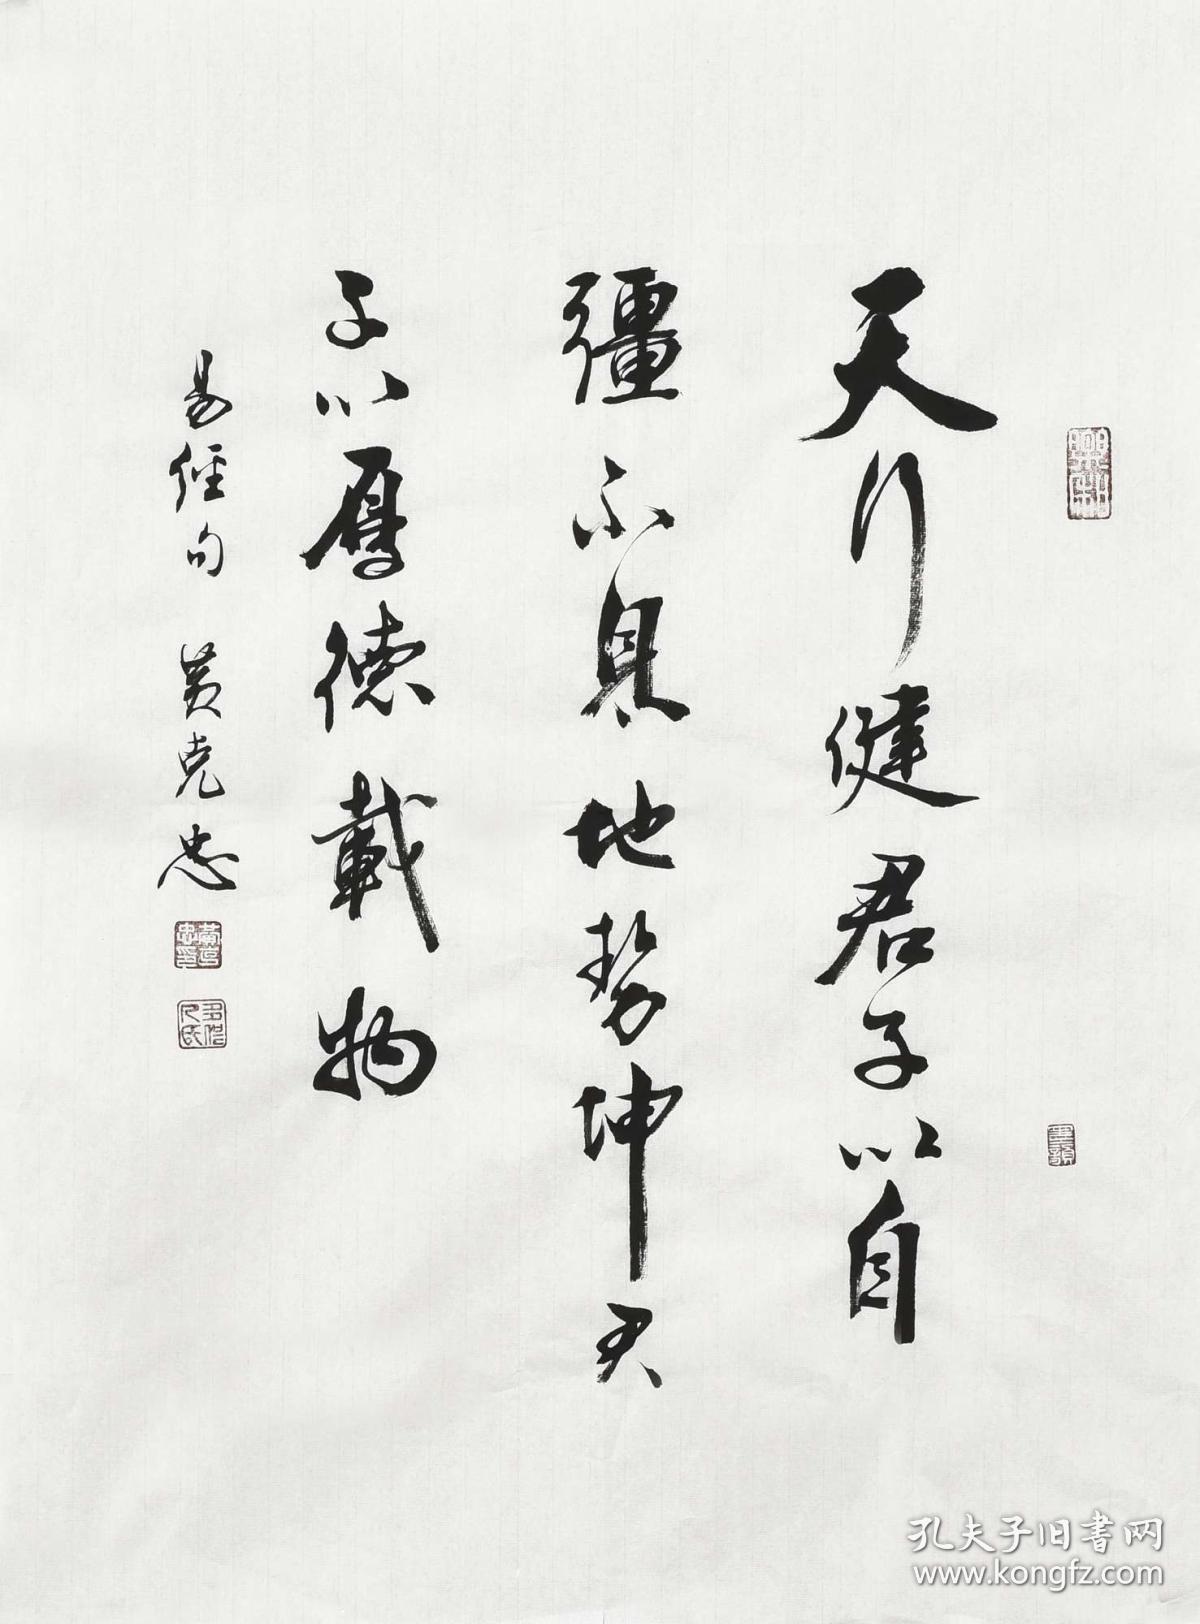 天行健君子以自
彊不息地势坤君
子以厚德載物
易經句 黄克忠
孔夫子旧書网
www.kongfz.com